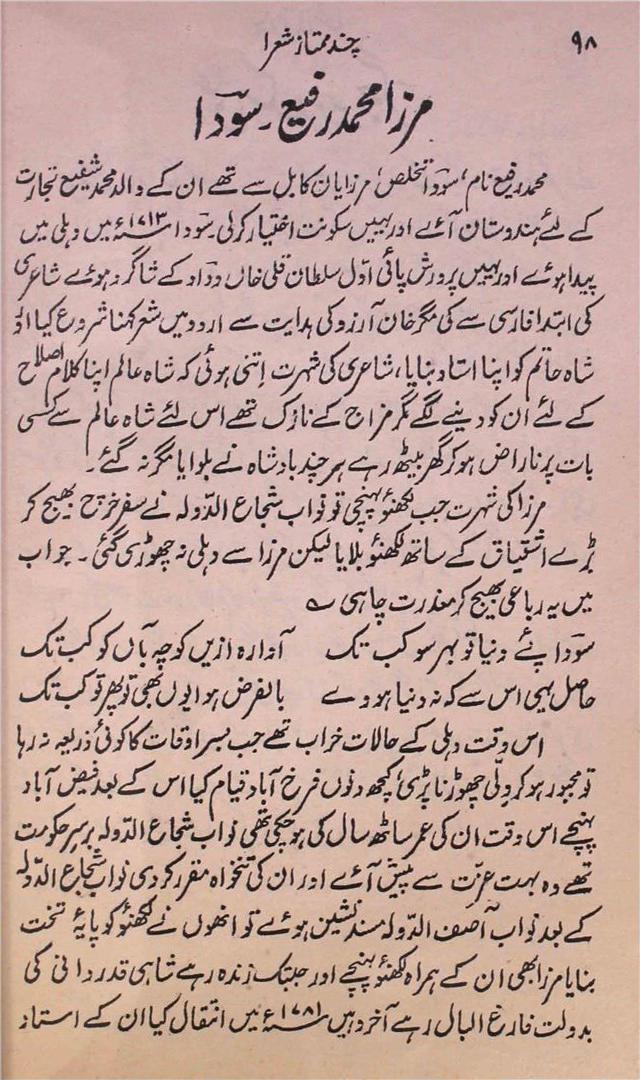 ۹۸
چند ممتاز شعرا
مرزا محمد رفیع۔ سوؔدا
محمد رفیع نام، سوؔدا تخلص، مرزایان کابل سے تھے ان کے والد محمد شفیع تجارت
کے لئے ہندوستان آئے اور یہیں سکونت اختیار کرلی سوؔدا ۱۷۱۳ء میں دہلی میں
پیدا ہوئے اور یہیں پرورش پائی اوّل سلطان قلی خاں ودؔاد کے شاگرد ہوئے شاعری
کی ابتدا فارسی سے کی مگر خان آرزو کی ہدایت سے اردو میں شعر کہنا شروع کیا اور
شاہ حاتم کو اپنا استاد بنایا، شاعری کی شہرت اِتنی ہوئی کہ شاہ عالم اپنا کلام اصلاح
کے لئے ان کو دینے لگے مگر مزاج کے نازک تھے اس لئے شاہ عالم سے کسی
بات پر ناراض ہوکر گھر بیٹھ رہے ہر چند بادشاہ نے بلوایا مگر نہ گئے۔
مرزا کی شہرت جب لکھنؤ پہنچی تو نواب شجاع الدّولہ نے سفر خرچ بھیج کر
بڑے اشتیاق کے ساتھ لکھنؤ بلایا لیکن مرزا سے دہلی نہ چھوڑی گئی۔ جواب
میں یہ رباعی بھیج کر معذرت چاہی ؎
سوؔدا پئے دنیا تو بہر سو کب تک    آوارہ ازیں کوچہ بآں کو کب تک
حاصل یہی اس سے کہ نہ دنیا ہووے    بالفرض ہوا یوں بھی تو پھر تو کب تک
اس وقت دہلی کے حالات خراب تھے جب بسر اوقات کا کوئی ذریعہ نہ رہا
تو مجبور ہوکر دِلّی چھوڑنا پڑی، کچھ دنوں فرخ آباد قیام کیا اس کے بعد فیض آباد
پہنچے اس وقت ان کی عمر ساٹھ سال کی ہوچکی تھی نواب شجاع الدّولہ برسرِ حکومت
تھے وہ بہت عزّت سے پیش آئے اور ان کی تنخواہ مقرر کردی نواب شجاع الدّولہ
کے بعد نواب آصف الدّولہ مسند نشین ہوئے تو انھوں نے لکھنؤ کو پایۂ تخت
بنایا مرزا بھی ان کے ہمراہ لکھنؤ پہنچے اور جبتک زندہ رہے شاہی قدردانی کی
بدولت فارغ البال رہے آخر وہیں ۱۷۸۱ء میں انتقال کیا ان کے استاد